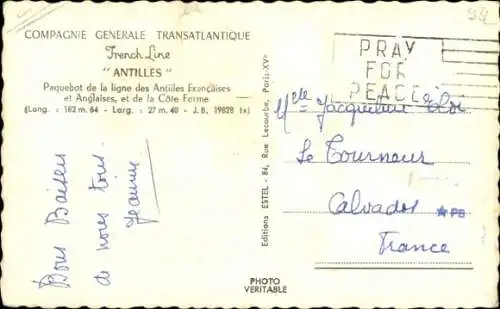 COMPAGNIE GENERALE TRANSATLANTIQUE
French Line
"ANTILLES"
Paquebot de la ligne des Antilles Françaises
et Anglaises, et de la Côte Ferme
(Long. : 182 m. 64 - Larg. : 27 m. 40 - J.B. 19828 tx)
Bons Baisers
de nous tous
Jeanine
Editions ESTEL - 84, Rue Lecourbe, Paris-XVe
PHOTO
VERITABLE
PRAY
FOR
PEACE
Melle Jacqueline
Le Tourneur
Calvados
France
PS